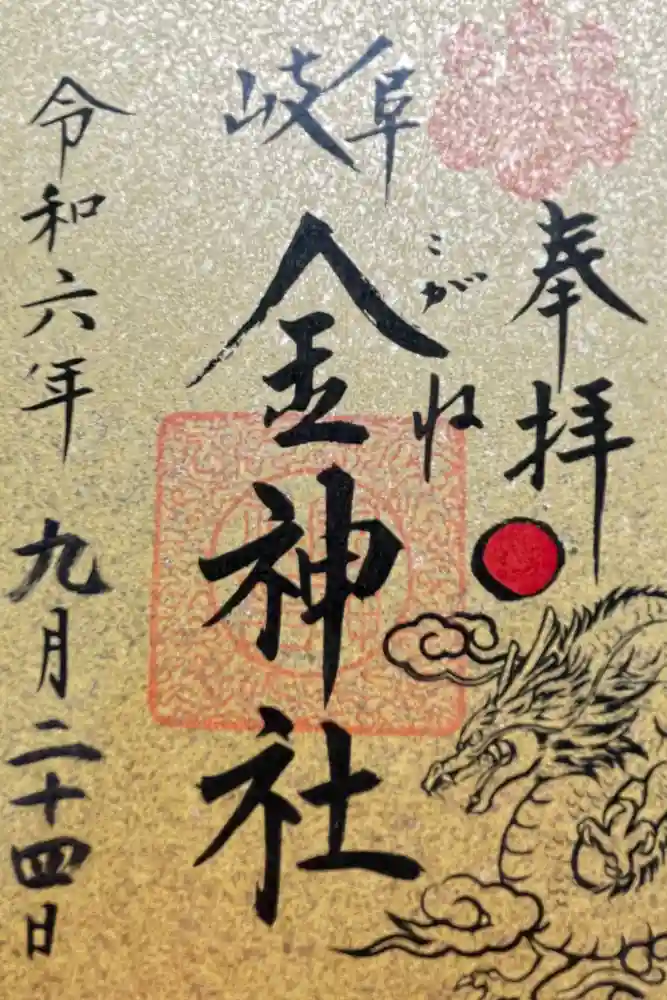 奉拝
岐阜
こがね
金神社
令和六年九月二十四日